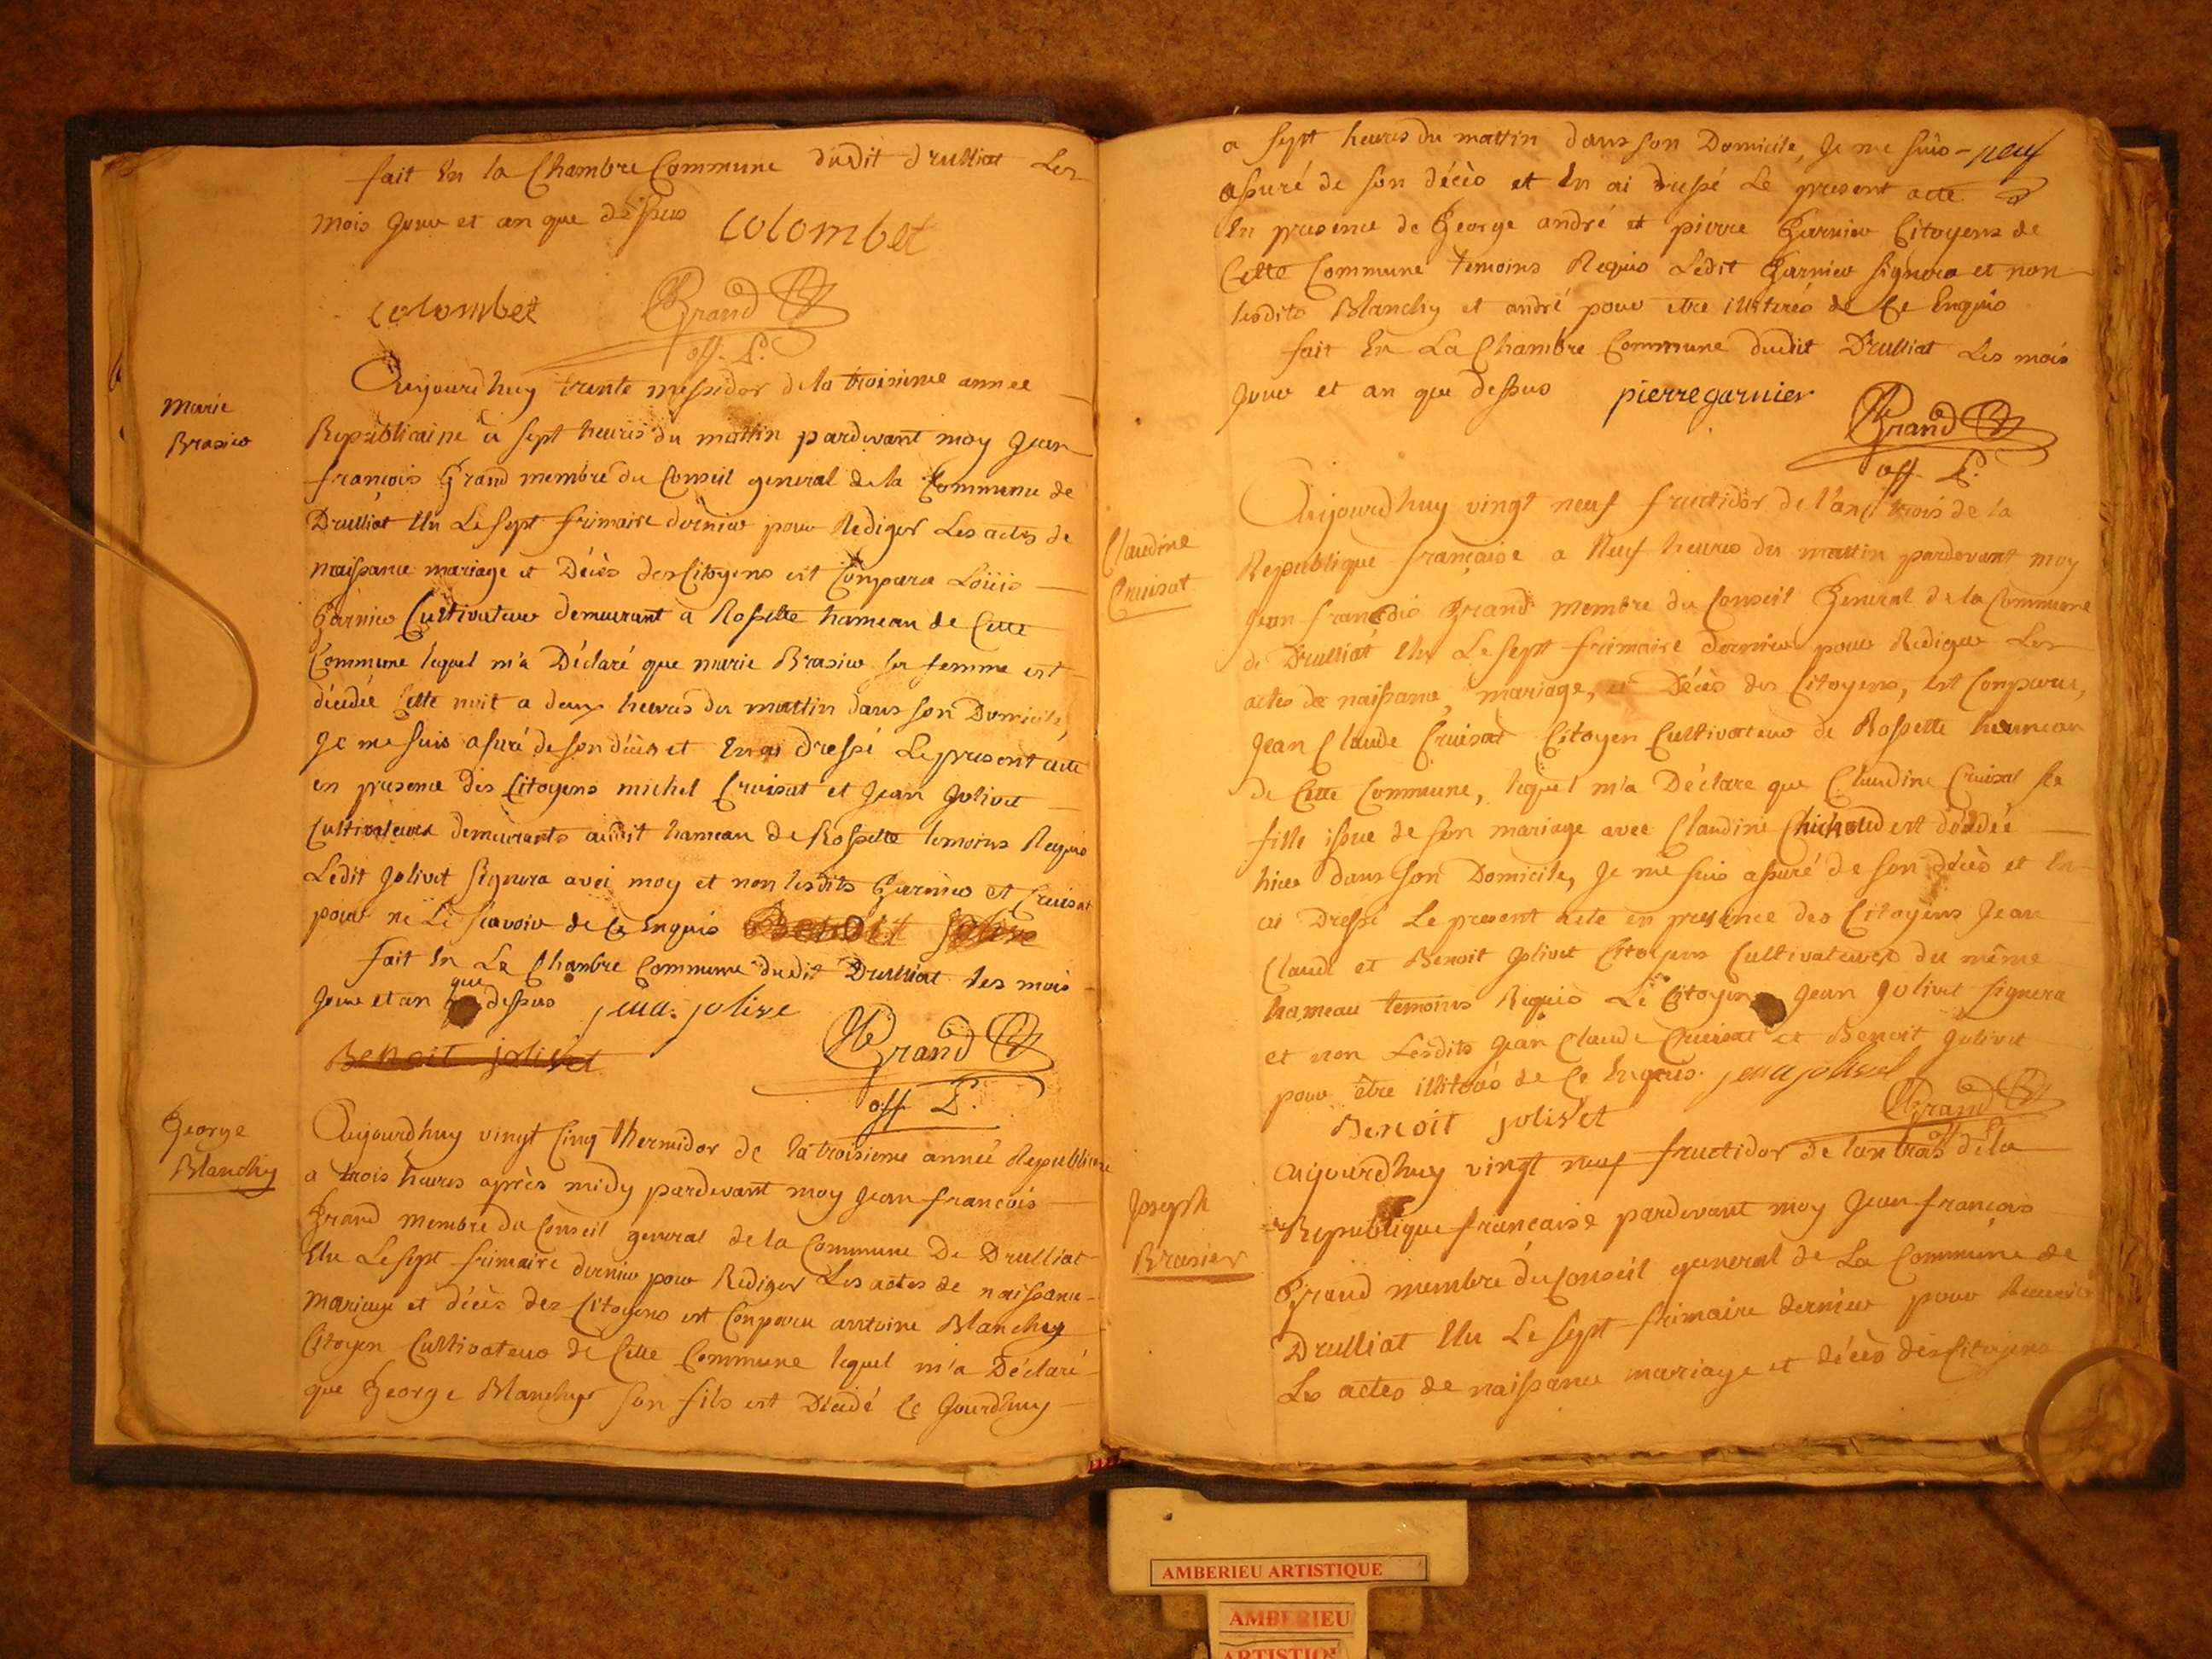 fait En la Chambre Commune dudit drulliat Les
mois jour et an que dessus colombet
colombet Grand
off. P.
Marie
Brasier
Aujourdhuy trente messidor de la troisieme annee
Republicaine a sept heures du mattin pardevant moy Jean
françois Grand membre du Conseil general de la Commune de
Drulliat Elu Le sept frimaire dernier pour Rediger Les actes de
naissance mariage et Décès des Citoyens est Conparu Loüis
Garnier Cultivateur demeurant a Rossette hameau de Cette
Commune lequel m'a Déclaré que marie Brasier sa femme est
décédée Cette nuit a deux heures du mattin dans son Domicile,
Je me suis asuré de son décès et En ai dressé Le present acte
en presence des Citoyens michel Cruisat et Jean Jolivet
Cultivateurs demeurants audit hameau de Rossette temoins Requis
Ledit Jolivet signera avec moy et non lesdits Garnier et Cruisat
pour ne Le scavoir de Ce Enquis
fait En La Chambre Commune dudit Drulliat les mois
jour et an que dessus jean jolive
Benoit jolivet Grand
off. P.
George
Blanchy
Aujourdhuy vingt Cinq thermidor de la troisieme année Republicaine
a trois heures après midy pardevant moy Jean francois
Grand membre du Conseil general de la Commune De Drulliat
Elu Le sept frimaire dernier pour Rediger Les actes de naissance
mariage et décès des Citoyens est Conparu antoine Blanchy
Citoyen Cultivateur de Cette Commune lequel m'a Déclaré
que George Blanchy son fils est Décédé Ce Jourdhuy
a sept heures du mattin dans son Domicile, Je me suis neuf
assuré de son décès et En ai dressé Le present acte
En presence de George andré et pierre Garnier Citoyens de
Cette Commune temoins Requis Ledit Garnier signera et non
lesdits Blanchy et andré pour etre illiterés de Ce Enquis
fait En La Chambre Commune dudit Drulliat Les mois
jour et an que dessus pierre garnier
Grand
off. P.
Claudine
Cruisat
Aujourdhuy vingt neuf fructidor de l'an trois de la
Republique française a Neuf heures du mattin pardevant moy
Jean françois Grand Membre du Conseil General de la Commune
de Drulliat Elu Le sept frimaire dernier pour Rediger Les
actes de naissance, mariage, et Décès des Citoyens, est Conparu,
Jean Claude Cruisat Citoyen Cultivateur de Rossette hameau
de Cette Commune, lequel m'a Déclare que Claudine Cruisat sa
fille issue de son mariage avec Claudine Chichoud est décédée
hier dans son Domicile, Je me suis assuré de son décès et En
ai Dressé Le present acte en presence des Citoyens Jean
Claude et Benoit Jolivet Citoyens Cultivateurs du même
hameau temoins Requis Le Citoyen Jean Jolivet signera
et non Lesdits Jean Claude Cruisat et Benoit Jolivet
pour être illiterés de Ce Enquis. jean jolivet
Benoit jolivet Grand
off
Joseph
Brasier
aujourdhuy vingt neuf fructidor de lan trois de la
Republique française pardevant moy Jean françois
Grand membre du Conseil general de La Commune de
Drulliat Elu Le sept frimaire dernier pour
Les actes de naissance mariage et décès des Citoyens
AMBERIEU ARTISTIQUE
AMBERIEU
ARTISTIQ